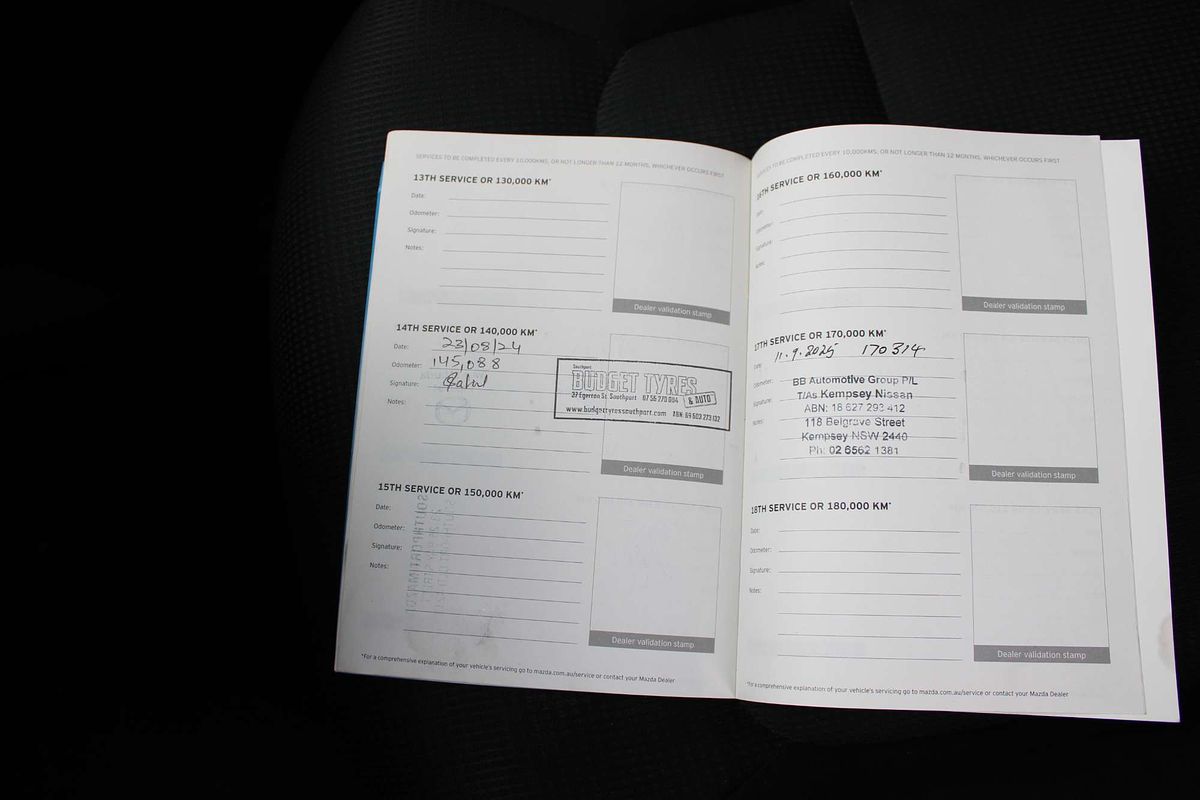 SERVICES TO BE COMPLETED EVERY 10,000KMS, OR NOT LONGER THAN 12 MONTHS, WHICHEVER OCCURS FIRST
13TH SERVICE OR 130,000 KM*
Date:
Odometer:
Signature:
Notes:
Dealer validation stamp
14TH SERVICE OR 140,000 KM*
Date: 23/08/24
Odometer: 145,088
Signature:
Notes:
Southport
BUDGET TYRES
& AUTO
27 Egerton St. Southport 07 56 770 004
www.budgettyressouthport.com ABN: 69 603 273 132
Dealer validation stamp
15TH SERVICE OR 150,000 KM*
Date:
Odometer:
Signature:
Notes:
Dealer validation stamp
*For a comprehensive explanation of your vehicle's servicing go to mazda.com.au/service or contact your Mazda Dealer
SERVICES TO BE COMPLETED EVERY 10,000KMS, OR NOT LONGER THAN 12 MONTHS, WHICHEVER OCCURS FIRST
16TH SERVICE OR 160,000 KM*
Date:
Odometer:
Signature:
Notes:
Dealer validation stamp
17TH SERVICE OR 170,000 KM*
Date: 11.9.2025 170314
Odometer:
Signature:
Notes:
BB Automotive Group P/L
T/As Kempsey Nissan
ABN: 18 627 293 412
118 Belgrave Street
Kempsey NSW 2440
Ph: 02 6562 1381
Dealer validation stamp
18TH SERVICE OR 180,000 KM*
Date:
Odometer:
Signature:
Notes:
Dealer validation stamp
*For a comprehensive explanation of your vehicle's servicing go to mazda.com.au/service or contact your Mazda Dealer